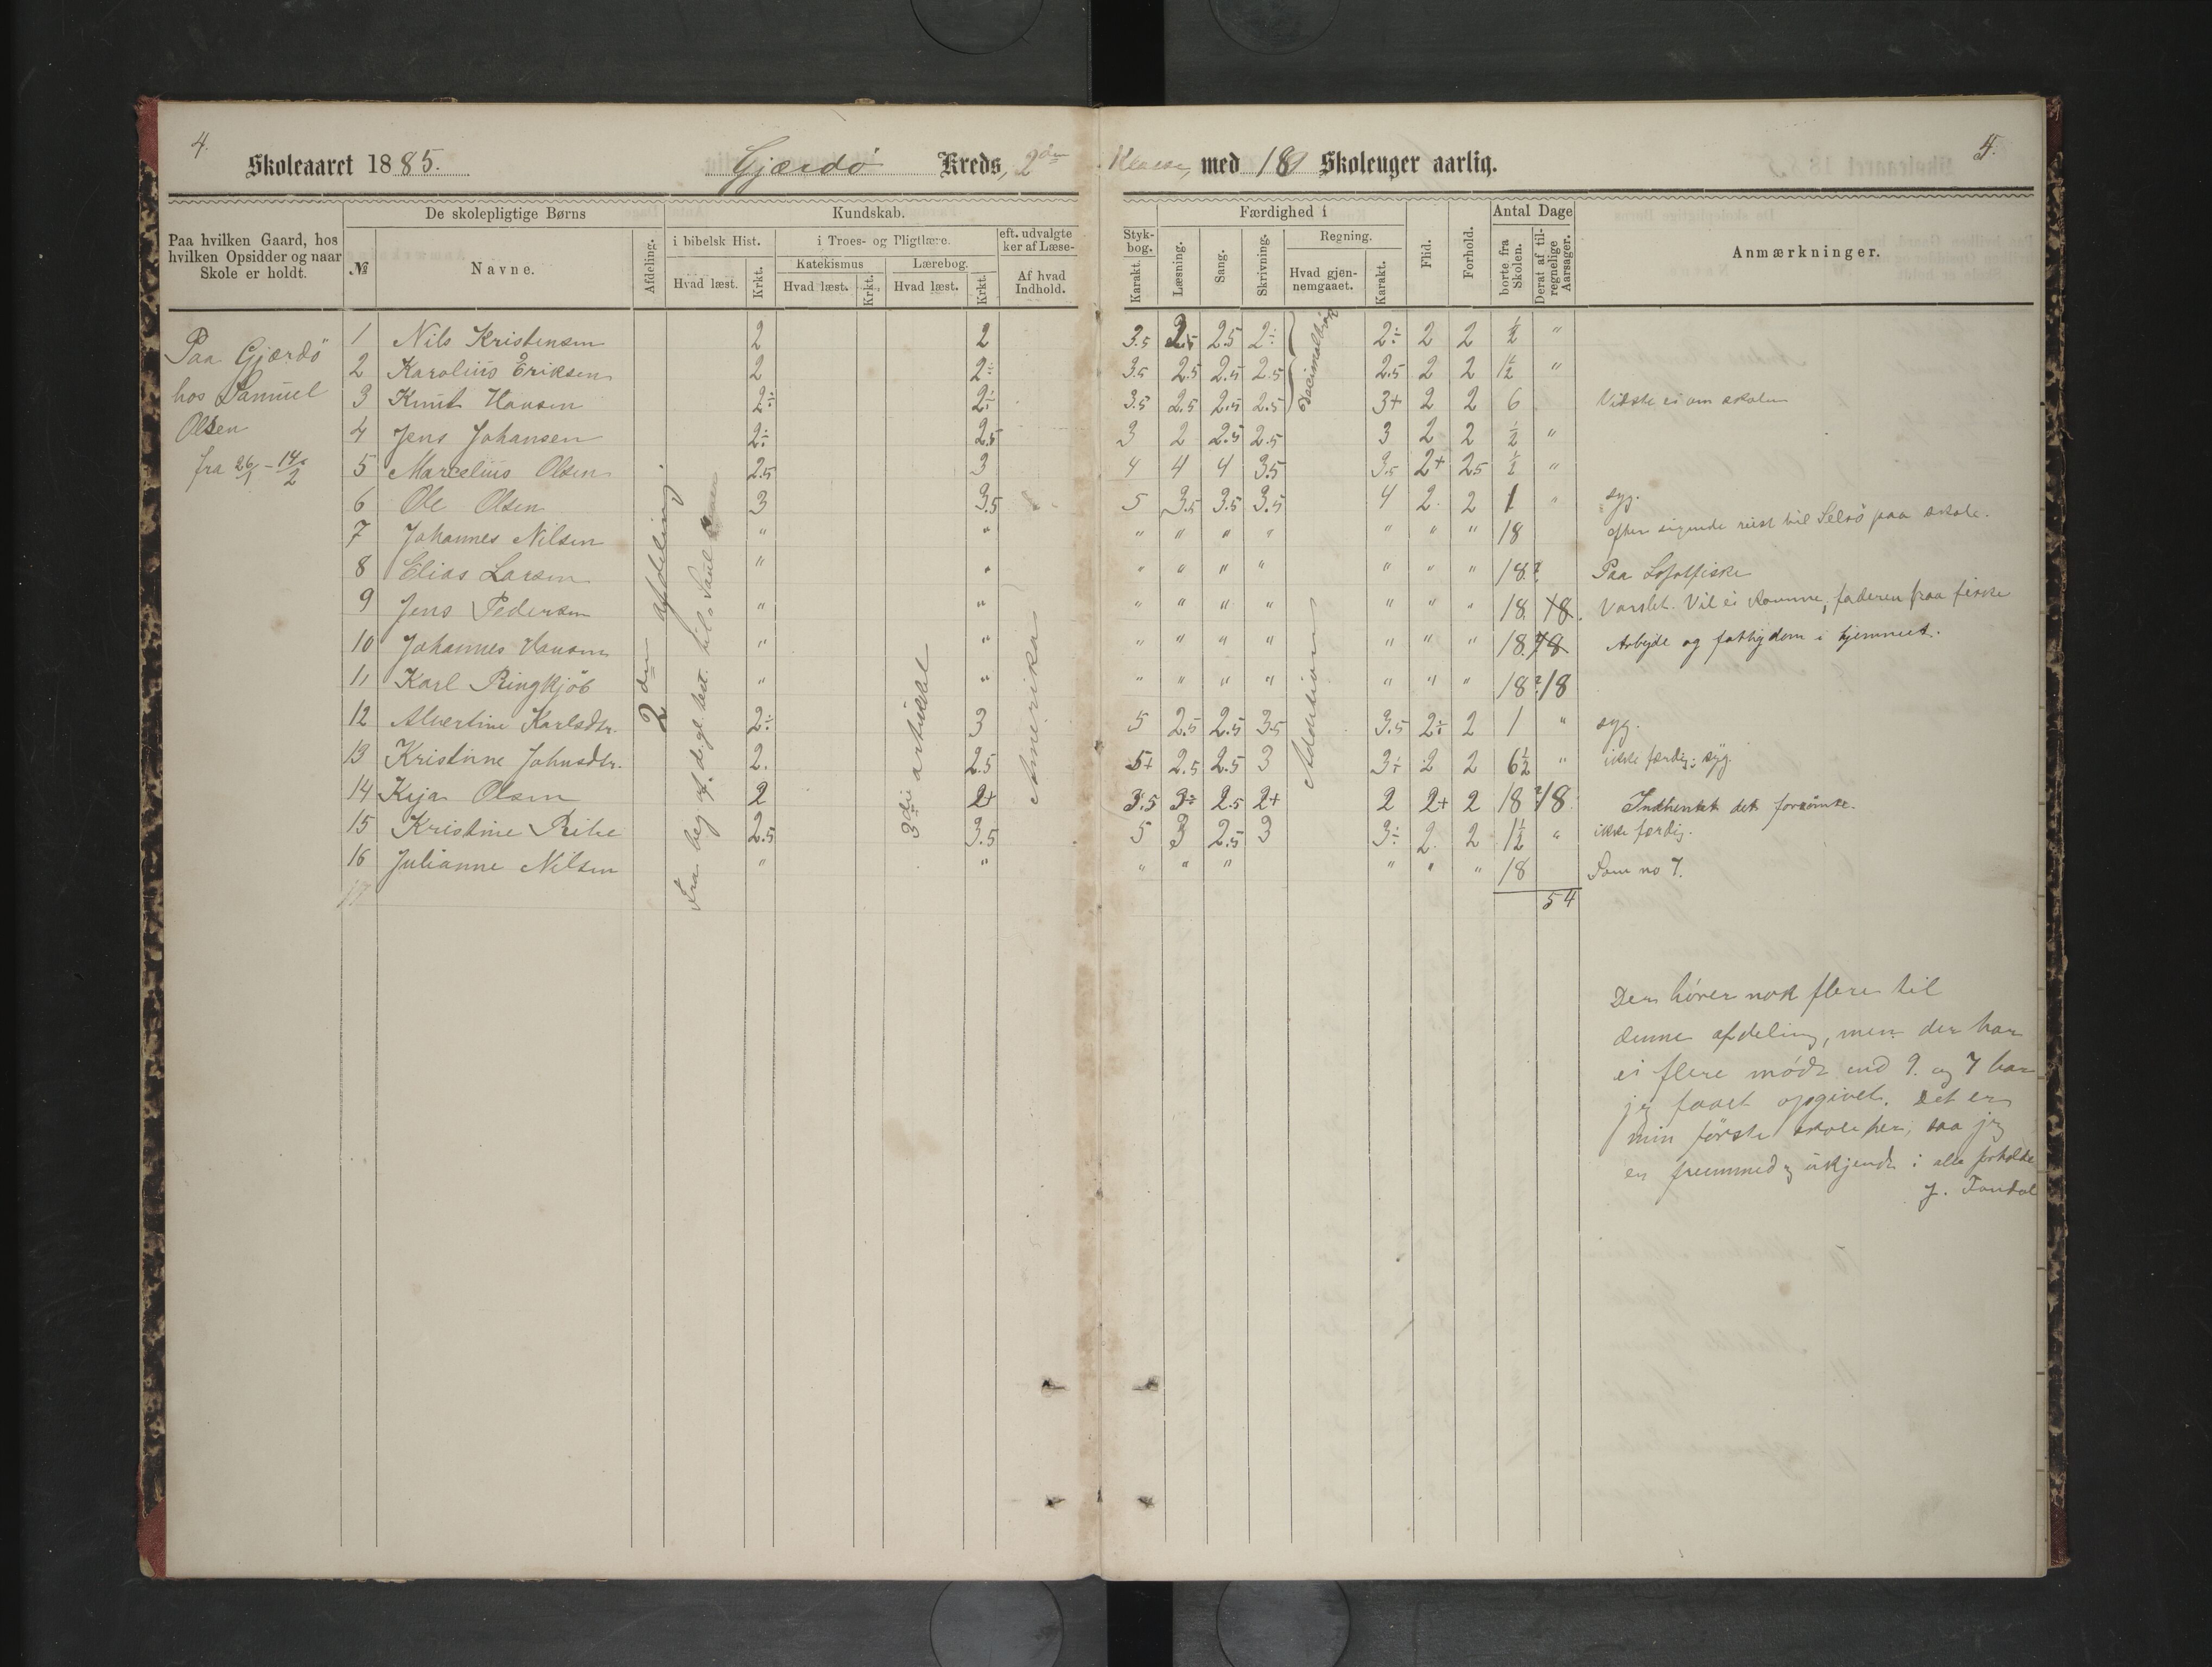 4.
Skoleaaret 1885. Gjærdö Kreds, 2den
Klasse, med 18 Skoleuger aarlig. 5.
Paa hvilken Gaard, hos hvilken Opsidder og naar Skole er holdt.
De skolepligtige Børns
№ Navne. Afdeling.
Kundskab.
i bibelsk Hist. Hvad læst. Krkt.
i Troes- og Pligtlære.
Katekismus Hvad læst. Krkt.
Lærebog. Hvad læst. Krkt.
eft. udvalgte
ker af Læse-
Af hvad Indhold.
Styk-
bog. Karakt.
Færdighed i
Læsning. Sang. Skrivning.
Regning. Hvad gjen-
nemgaaet. Karakt.
Flid. Forhold.
Antal Dage
borte fra Skolen. Deraf af til-
regnelige Aarsager.
Anmærkninger.
Paa Gjærdö
hos Samuel
Olsen
fra 26/1 - 14/2
2den afdeling.
Fra beg. af d. gl. test. til Saul
3die artikkel
Amerika
Decimalbrøk
Addition
1 Nils Kristensen 2 2 3.5 2.5 2.5 2÷ 2÷ 2 2 ½ "
2 Karolius Eriksen 2 2÷ 3.5 2.5 2.5 2.5 2.5 2 2 1½ "
3 Knut Hansen 2÷ 2÷ 3.5 2.5 2.5 2.5 3+ 2 2 6 Vidste ei om skolen
4 Jens Johansen 2÷ 2.5 3 2 2.5 2.5 3 2 2 ½ "
5 Marcelius Olsen 2.5 3 4 4 4 3.5 3.5 2+ 2.5 ½ "
6 Ole Olsen 3 3.5 5 3.5 3.5 3.5 4 2 2 1 " syg.
7 Johannes Nilsen " " " " " " " " " 18 efter sigende reist til Selsö paa skole.
8 Elias Larsen " " " " " " " " " 18? Paa Lofotfiske
9 Jens Pedersen " " " " " " " " " 18. 18. Varslet. Vil ei komme, faderen paa fiske
10 Johannes Hansen " " " " " " " " " 18.? 18 Arbejde og fattigdom i hjemmet.
11 Karl Ringkjöb " " " " " " " " " 18? 18
12 Alvertine Karlsdtr. 2÷ 3 5 2.5 2.5 3.5 3.5 2÷ 2 1 " syg.
13 Kristinne Johnsdtr. 2. 2.5 5+ 2.5 2.5 3 3÷ 2 2 6½ " ikke færdig; syg.
14 Keja Olsen 2 2+ 3.5 3÷ 2.5 2+ 2 2+ 2 18 ? 18 Indhentet det forsömte.
15 Kristine Rihe 2.5 3.5 5 3 2.5 3 3÷ 2 2 1½ " ikke færdig.
16 Julianne Nilsen " " " " " " " " 18 Som no 7.
17 54
Der hörer nok flere til
denne afdeling, men der har
ei flere mödt end 9. og 7 har
jeg faaet opgivet. Det er
min förste skole her, saa jeg
er fremmed og ukjendt i alle forholde
J.